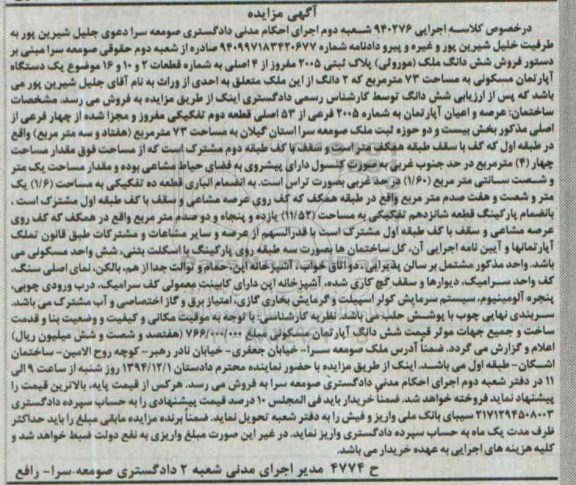 آگهی مزایده
درخصوص کلاسه اجرایی ۹۴۰۲۷۶ شعبه دوم اجرای احکام مدنی دادگستری صومعه سرا دعوی جلیل شیرین پور به
طرفیت خلیل شیرین پور و غیره و پیرو دادنامه شماره ۹۴۰۹۹۷۱۸۳۴۲۰۶۷۷ صادره از شعبه دوم حقوقی صومعه سرا مبنی بر
دستور فروش شش دانگ ملک (موروثی) پلاک ثبتی ۲۰۰۵ مفروز از ۴ اصلی به شماره قطعات ۲ و ۱۰ و ۱۶ موضوع یک دستگاه
آپارتمان مسکونی به مساحت ۷۳ مترمربع که ۲ دانگ از این ملک متعلق به احدی از وراث به نام آقای جلیل شیرین پور می
باشد که پس از ارزیابی شش دانگ توسط کارشناس رسمی دادگستری اینک از طریق مزایده به فروش می رسد. مشخصات
ساختمان: عرصه و اعیان آپارتمان به شماره ۲۰۰۵ فرعی از ۵۳ اصلی قطعه دوم تفکیکی مفروز و مجزا شده از چهار فرعی از
اصلی مذکور بخش بیست و دو حوزه ثبت ملک صومعه سرا استان گیلان به مساحت ۷۳ مترمربع (هفتاد و سه متر مربع) واقع
در طبقه اول که کف با سقف طبقه همکف متر است و سقف با کف طبقه دوم مشترک است که از مساحت فوق مقدار مساحت
چهار (۴) مترمربع در حد جنوب غربی به صورت کنسول دارای پیشروی به فضای حیاط مشاعی بوده و مقدار مساحت یک متر
و شصت سانتی متر مربع (۱/۶۰) در حد غربی بصورت تراس است. به انضمام انباری قطعه ده تفکیکی به مساحت (۱/۶) یک
متر و شصت و هفت صدم متر مربع واقع در طبقه همکف که کف روی عرصه مشاعی و سقف با کف طبقه اول مشترک است.
بانضمام پارکینگ قطعه شانزدهم تفکیکی به مساحت (۱۱/۵۲) یازده و پنجاه و دو صدم متر مربع واقع در همکف که کف روی
عرصه مشاعی و سقف با کف طبقه اول مشترک است با قدرالسهم از عرصه و سایر مشاعات و مشترکات طبق قانون تملک
آپارتمانها و آیین نامه اجرایی آن، کل ساختمان ها بصورت سه طبقه روی پارکینگ با اسکلت بتنی، شش واحد مسکونی می
باشد. واحد مذکور مشتمل بر سالن پذیرایی، دو اتاق خواب، آشپزخانه اپن، حمام و توالت جدا از هم، بالکن، نمای اصلی سنگ،
کف واحد سرامیک، دیوارها و سقف گچ کاری شده، آشپزخانه اپن دارای کابینت معمولی کف سرامیک، درب ورودی چوبی،
پنجره آلومینیوم، سیستم سرمایش کولر اسپیلت و گرمایش بخاری گازی، امتیاز برق و گاز اختصاصی و آب مشترک می باشد.
سربندی نهایی چوب با پوشش حلب می باشد. نظریه کارشناسی: با توجه به موقعیت مکانی و کیفیت و وضعیت بنا و قدمت
ساخت و جمیع جهات موثر قیمت شش دانگ آپارتمان مسکونی مبلغ ۷۶۶/۰۰۰/۰۰۰ (هفتصد و شصت و شش میلیون ریال)
اعلام و گزارش می گردد. ضمناً آدرس ملک صومعه سرا- خیابان جعفری- خیابان نادر رهبر- کوچه روح الامین- ساختمان
اشکان- طبقه اول می باشد. اینک از طریق مزایده با حضور نماینده محترم دادستان ۱۳۹۴/۱۲/۱ روز شنبه از ساعت ۹ الی
۱۱ در دفتر شعبه دوم اجرای احکام مدنی دادگستری صومعه سرا به فروش می رسد. هرکس از قیمت پایه، بالاترین قیمت را
پیشنهاد نماید فروخته خواهد شد. ضمناً خریدار باید فی المجلس ۱۰ درصد قیمت پیشنهادی را به حساب سپرده دادگستری
۲۱۷۱۲۹۴۵۰۸۰۰۳ سیبای بانک ملی واریز و فیش را به دفتر شعبه تحویل نماید. ضمناً برنده مزایده مابقی مبلغ را باید حداکثر
ظرف مدت یک ماه به حساب سپرده دادگستری واریز نماید. در غیر این صورت مبلغ واریزی به نفع دولت ضبط خواهد شد و
کلیه هزینه های اجرایی به عهده خریدار می باشد.
ح ۴۷۷۴ مدیر اجرای مدنی شعبه ۲ دادگستری صومعه سرا- رافع